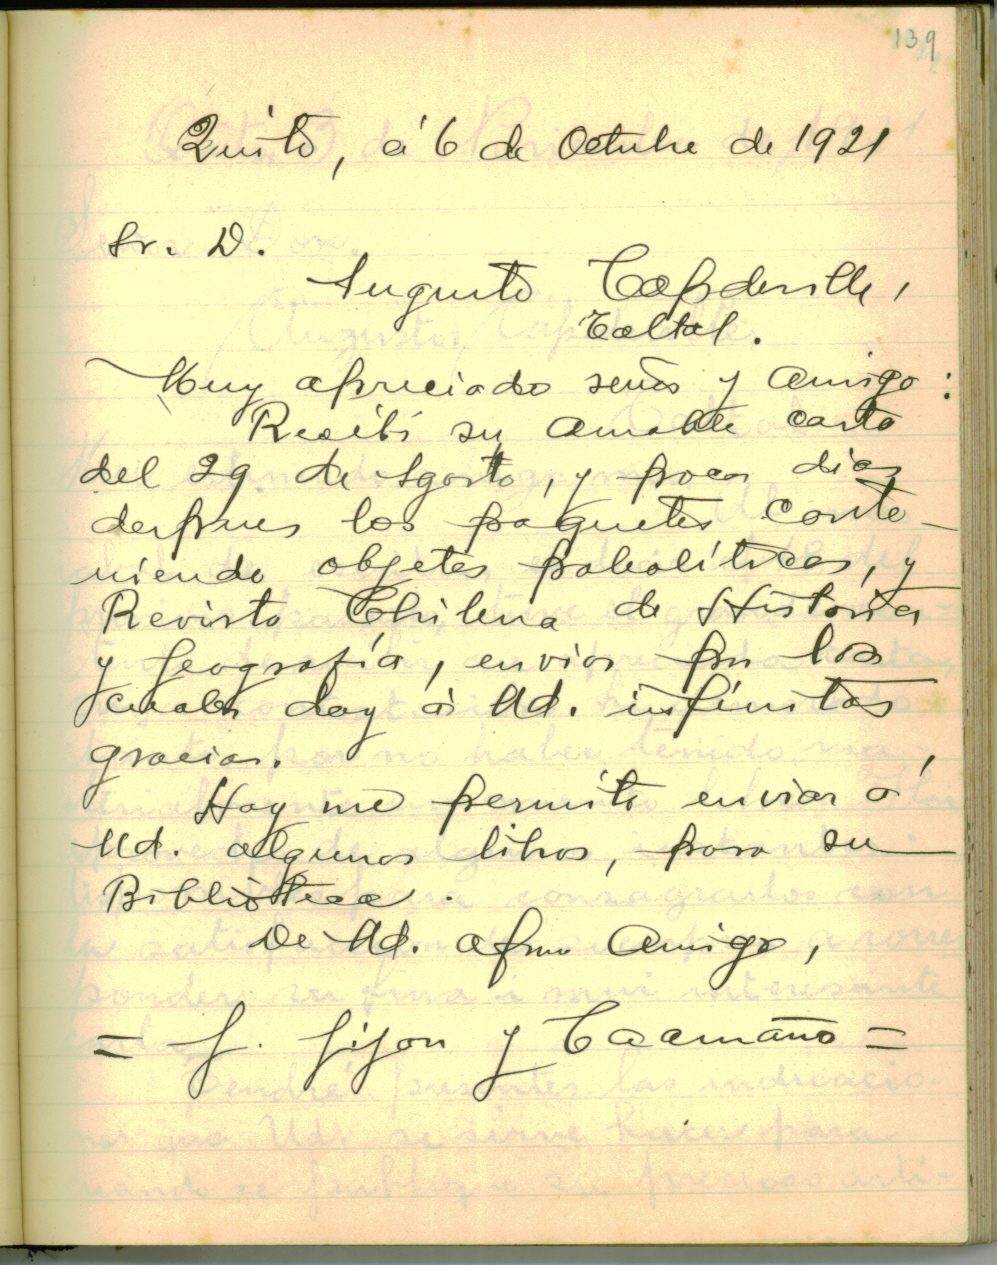 139
Quito, á 6 de Octubre de 1921
Sr. D.
Augusto Capdeville,
Taltal.
Muy apreciado señor y amigo:
Recibí su amable carta
del 29 de Agosto, y pocos dias
despues los paquetes conte-
niendo objetos paleolíticos, y
Revista Chilena de Historia
y Geografía, envios por los
cuales doy á Ud. infinitas
gracias.
Hoy me permito enviar á
Ud. algunos libros, para su
Biblioteca.
De Ud. afmo amigo,
= J. Jijon y Caamaño =